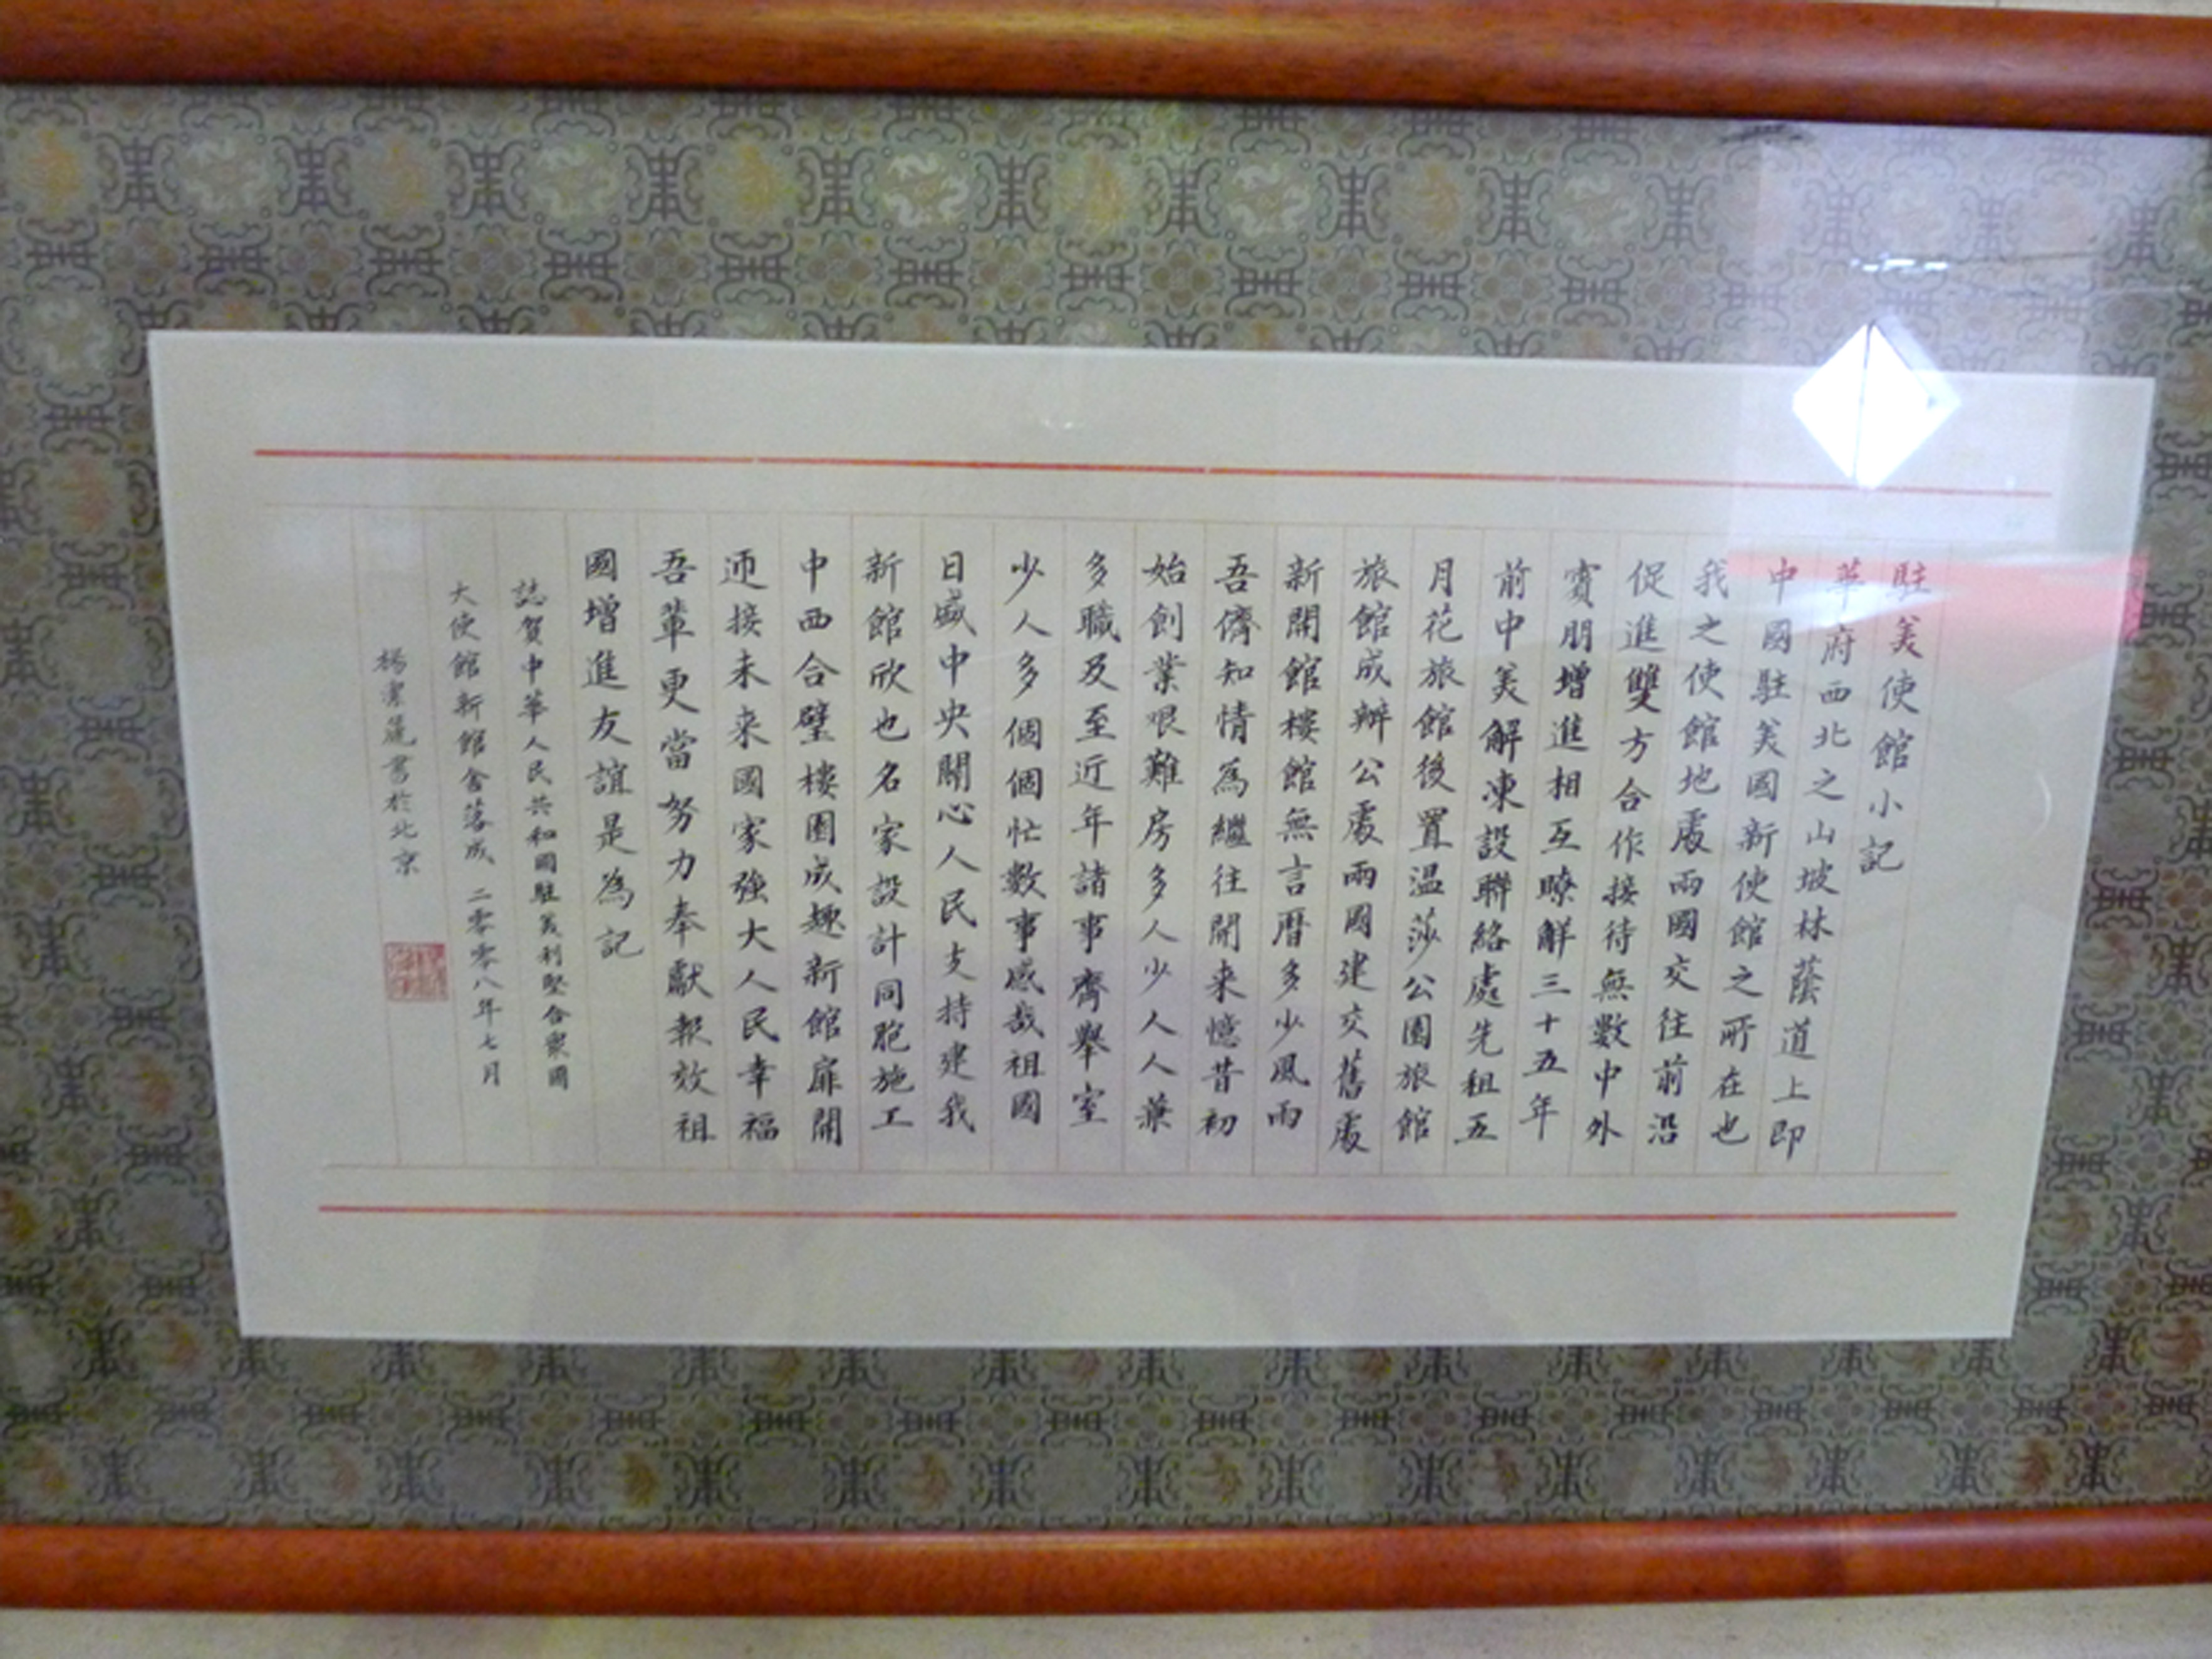 駐美使館小記
華府西北之山坡林蔭道上即
中國駐美國新使館之所在也
我之使館地處兩國交往前沿
促進雙方合作接待無數中外
賓朋增進相互瞭解三十五年
前中美解凍設聯絡處先租五
月花旅館後置温莎公園旅館
旅館成辦公處兩國建交舊處
新開館樓館無言曆多少風雨
吾儕知情為繼往開来憶昔初
始創業艰難房多人少人人兼
多職及至近年諸事齊舉室
少人多個個忙數事感哉祖國
日盛中央關心人民支持建我
新館欣也名家設計同胞施工
中西合璧樓園成趣新館扉開
迊接未來國家強大人民幸福
吾輩更當努力奉獻報效祖
國增進友誼是為記
誌賀中華人民共和國駐美利堅合衆國
大使館新館舍落成 二零零八年七月
楊潔篪書於北京